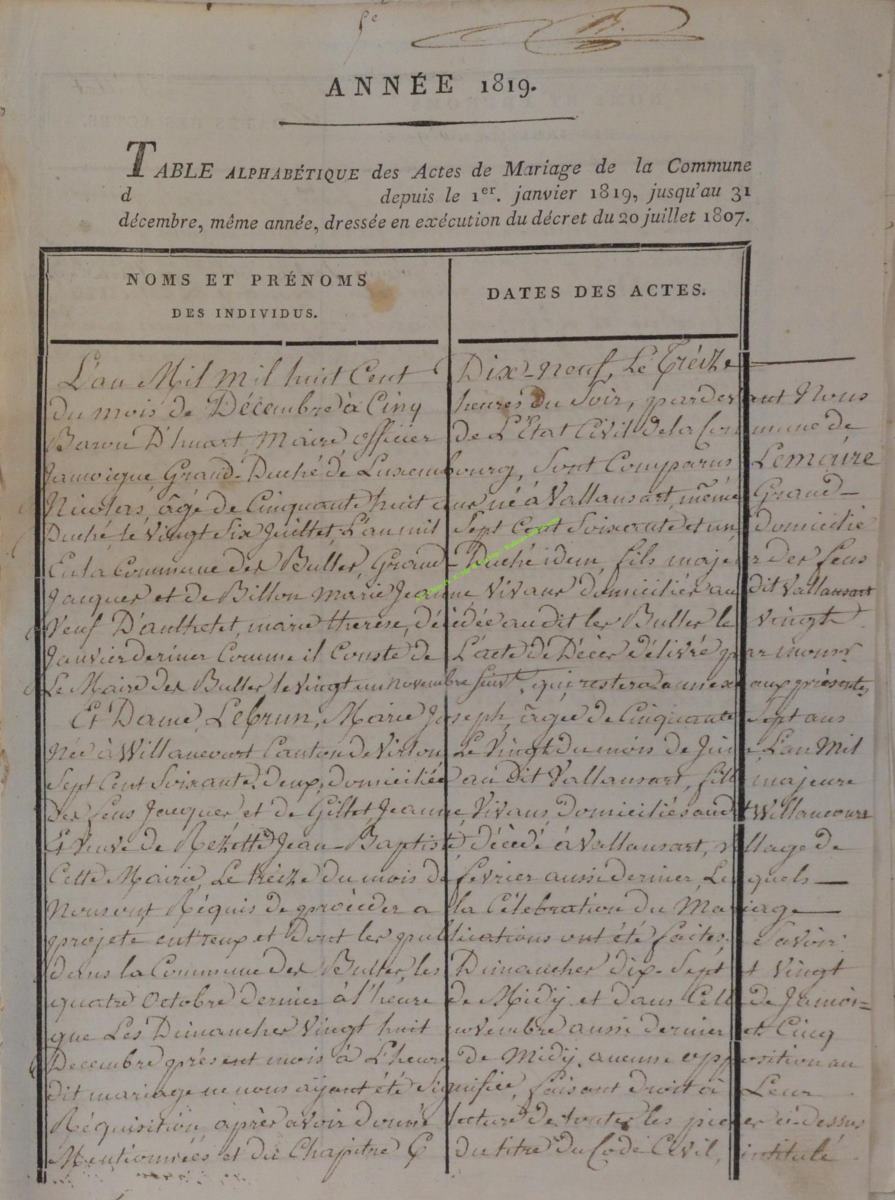 5e
ANNÉE 1819.
TABLE ALPHABÉTIQUE des Actes de Mariage de la Commune
d depuis le 1er. janvier 1819, jusqu'au 31
décembre, même année, dressée en exécution du décret du 20 juillet 1807.
NOMS ET PRÉNOMS
DES INDIVIDUS.
DATES DES ACTES.
L'an Mil mil huit Cent Dix-neuf, Le Treize
du mois de Décembre à Cinq heures du Soir, pardevant Nous
Baron D'huart, Maire officier de L'Etat Civil de la Commune de
Jamoigne Grand-Duché de Luxembourg, Sont Comparus Lemaire
Nicolas, âgé de Cinquante huit ans né à Vallansart, même Grand-
Duché le vingt Six Juillet, L'an mil Sept Cent Soixante et un, domicilié
En la Commune des Bulles, Grand-Duché idem, fils majeur des feus
Jacques et de Billon Marie Jeanne Vivans domiciliés audit Vallansart
Veuf D'authelet, marie therese, décédée audit les Bulles le vingt
Janvier dernier Comme il Conste de L'acte de Décès délivré par monsr
Le Maire des Bulles le vingt un novembre, qui restera annexé aux présentes,
Et Dame Lebrun, Marie Joseph, âgée de Cinquante Sept ans
Née à Willancourt Canton de Virton Le Vingt du mois de L'an Mil
Sept Cent Soixante-deux, domiciliée au dit Vallansart, fille majeure
Des feus Jacques et de Gillet Jeanne, Vivans, domiciliés audit Willancourt
Et Veuve de Jean-Baptiste décédé à Vallansart, village de
Cette Mairie, Le treize du mois de février aussi dernier, Lesquels
Nous ont Réquis de procéder a la Célébration du Mariage
projeté entr'eux et Dont les publications ont été faites, Savoir:
dans la Commune des Bulles, les Dimanches dix-Sept et Vingt
quatre Octobre dernier à l'heure de Midÿ et dans Celle de Jamoi=
gne Les Dimanches Vingt huit novembre aussi dernier et Cinq
Decembre présent mois à L'heure de Midÿ, aucune opposition au
dit mariage ne nous aÿant été Signifiée, faisant droit à Leur
Réquisition, après avoir donné lecture de toutes les pieces ci-dessus
Mentionnées et du Chapitre 6 du titre du Code Civil, intitulé